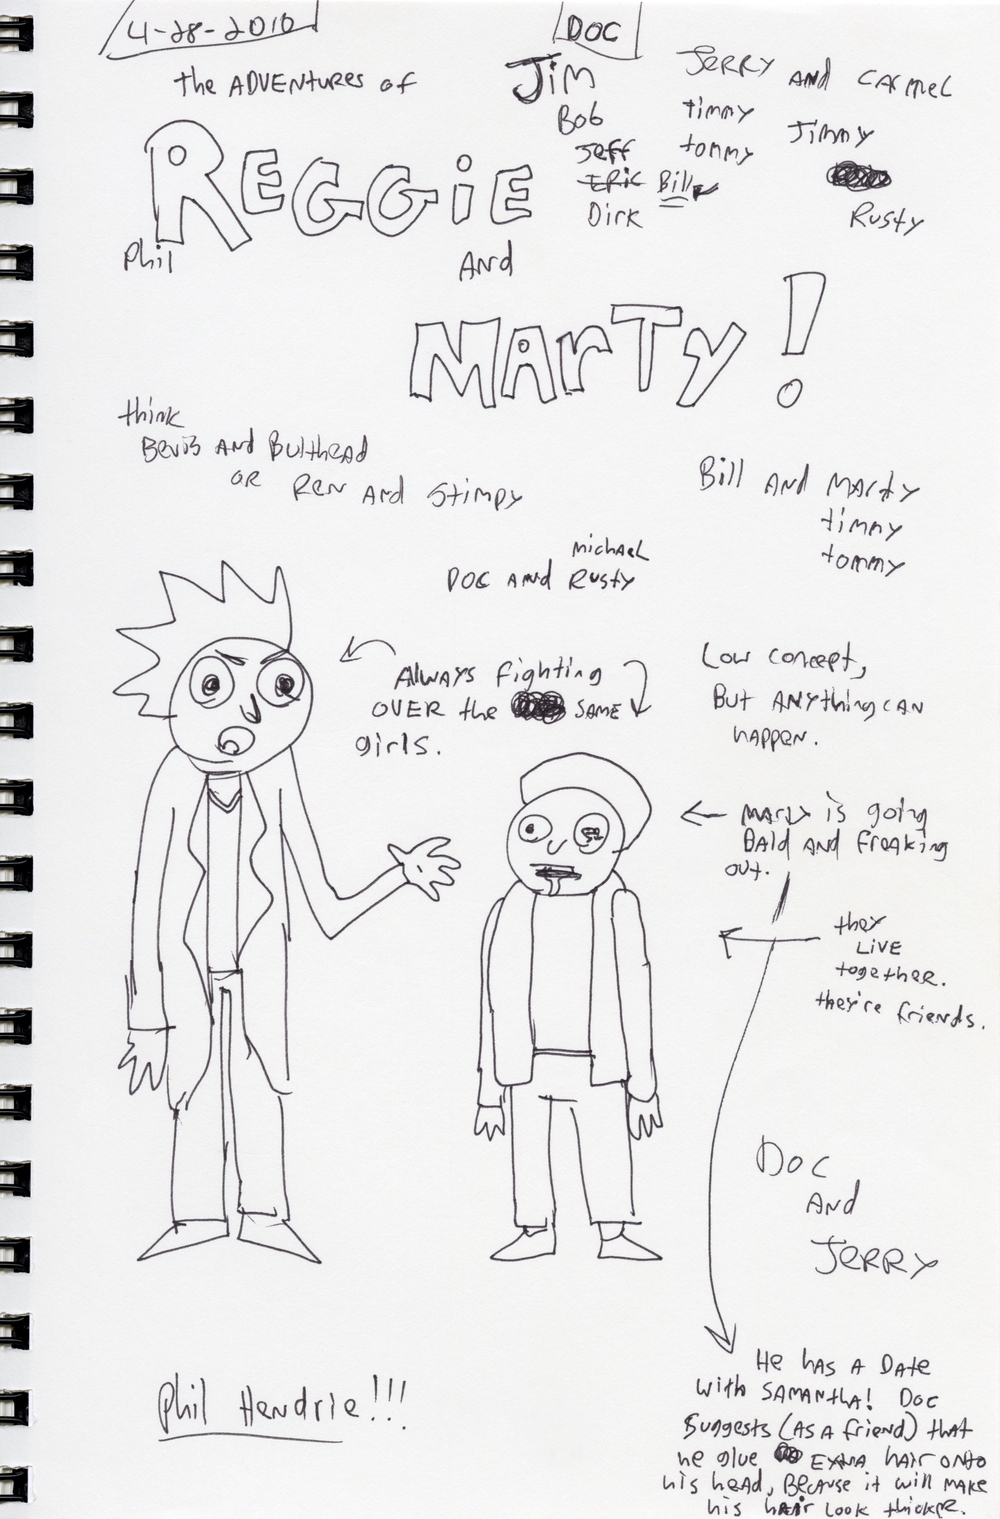 4-28-2010
DOC
the ADVENTURES of
REGGiE
Phil
AND
MArTy!
Jim
Bob
Jeff
ERiC Bill
Dirk
JERRY AND CARMEL
timmy
tommy
Jimmy
Rusty
think
Bevis AND Butthead
OR REN AND Stimpy
Bill AND Marty
timmy
tommy
michaeL
DOC AND Rusty
Always fighting
OVER the SAME
girls.
Low concept,
But ANYthing CAN
happen.
Marty is going
BAld AND freaking
out.
they
LiVE
together.
they're friends.
Doc
AND
JERRY
Phil Hendrie!!!
He hAS A Date
with SAMANTHA! Doc
Suggests (AS A friend) that
he glue EXtRA hair onto
his head, Because it will make
his hair Look thicker.